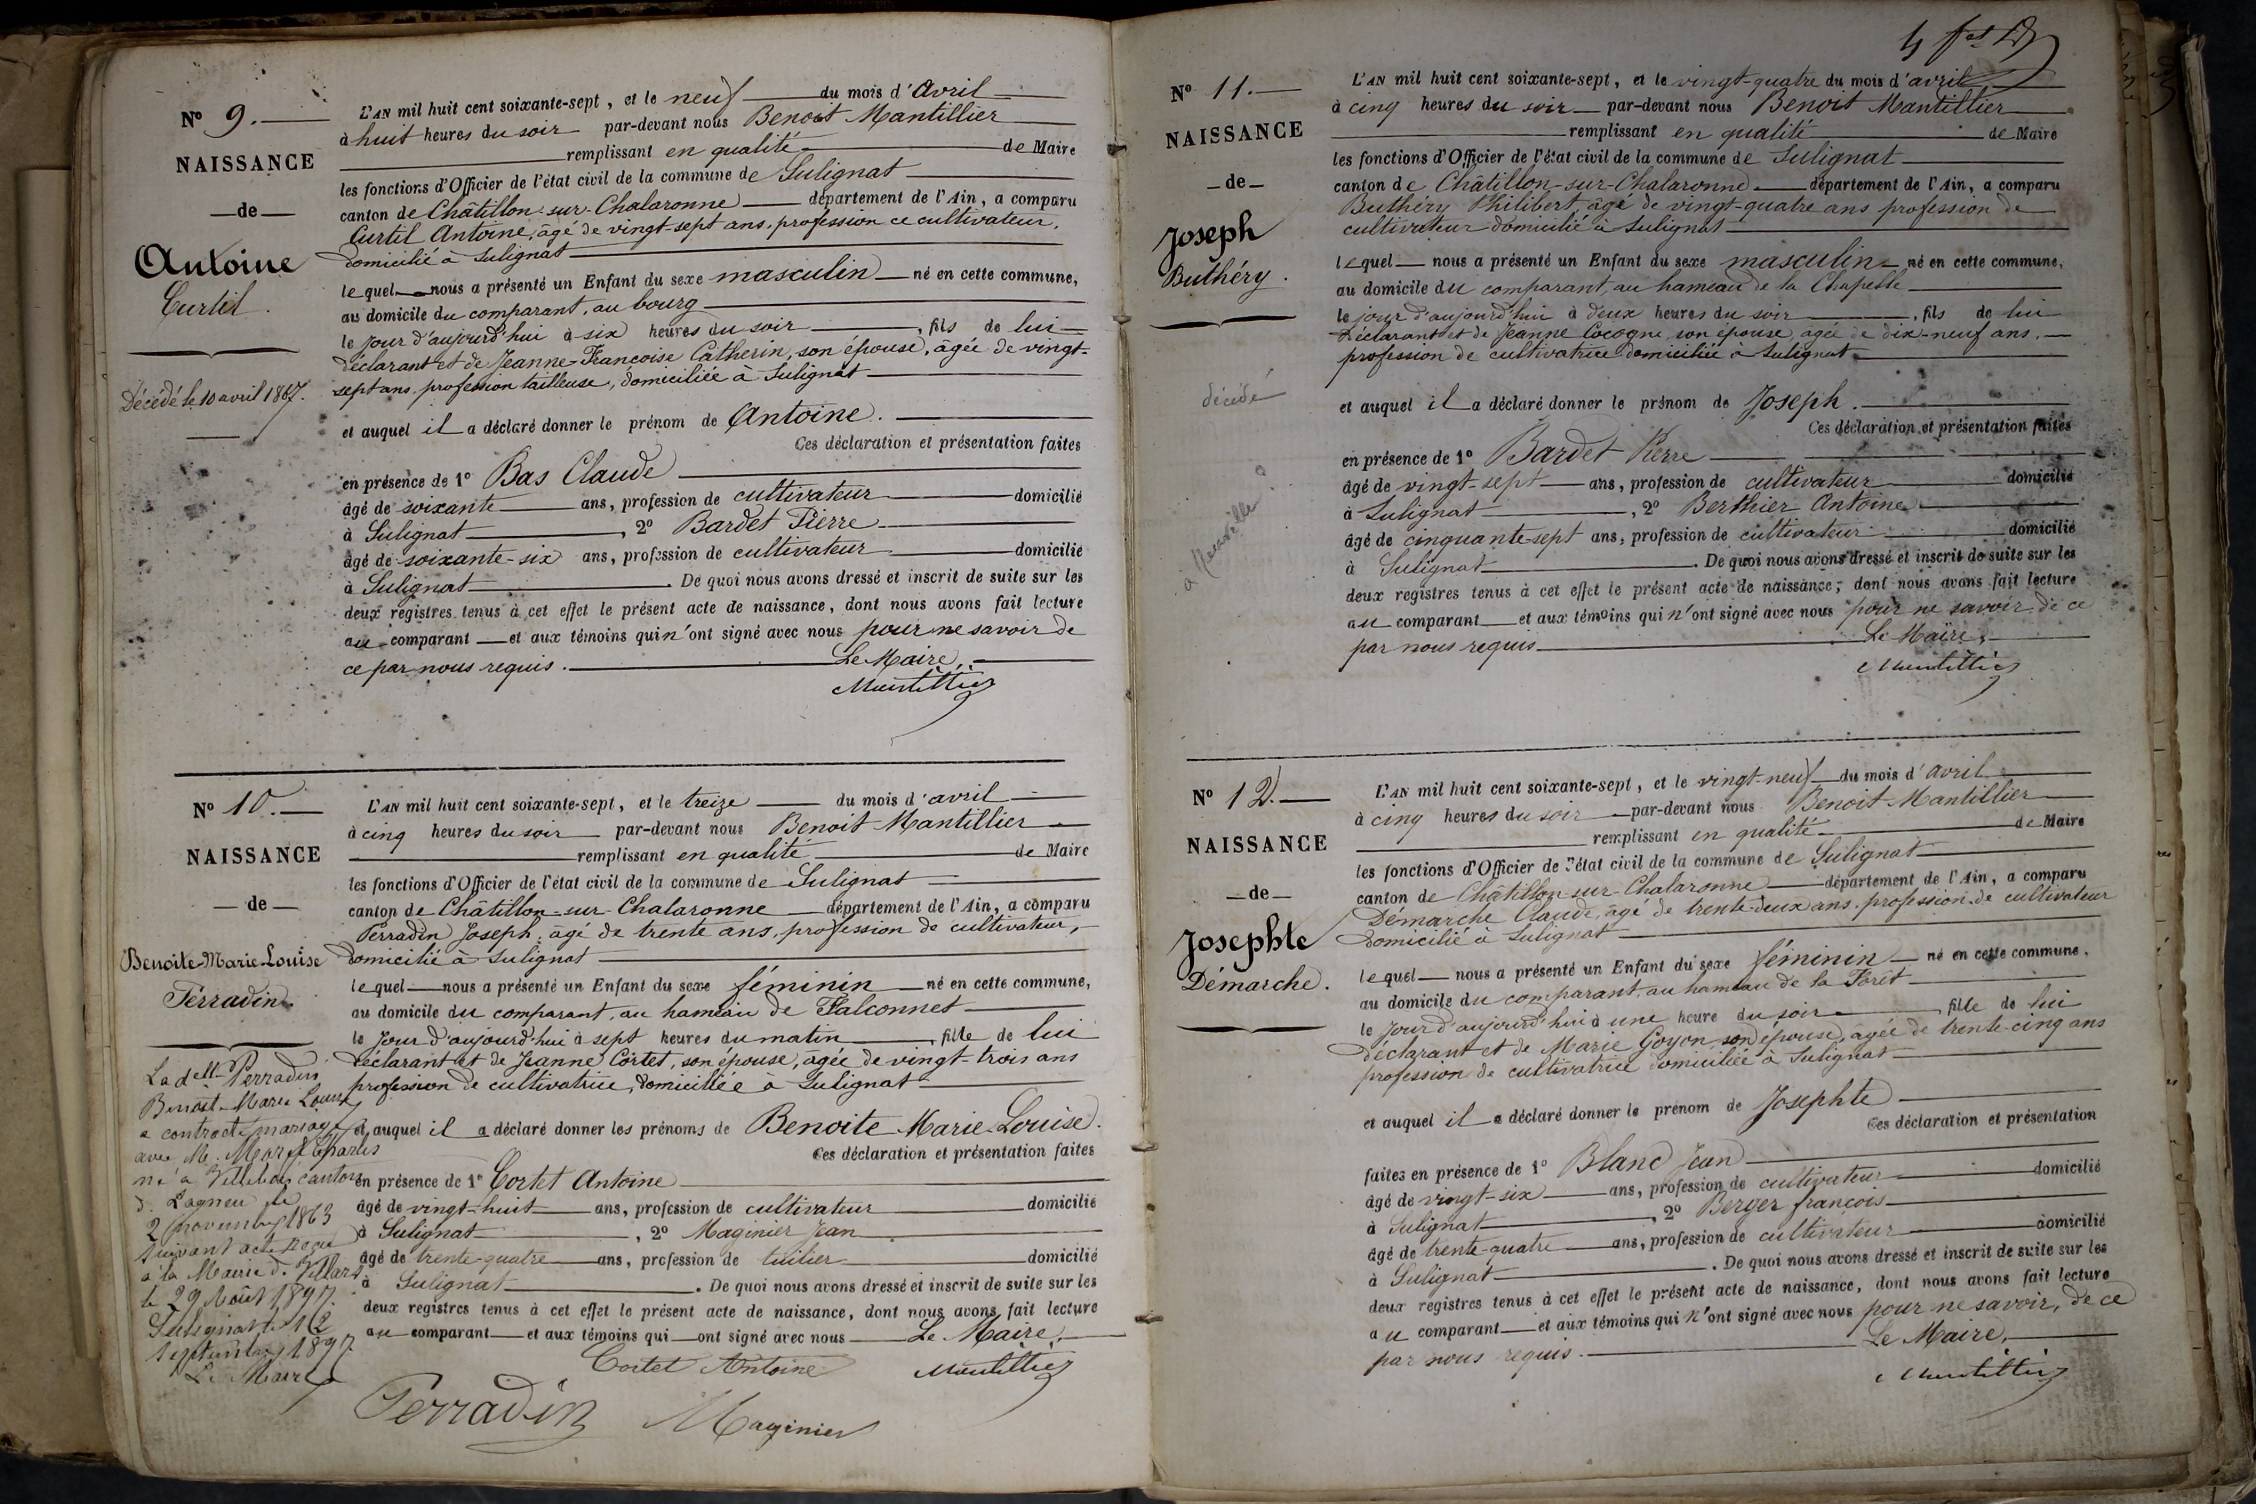 N° 9.
NAISSANCE
de
Antoine
Curtil.
Décédé le 10 avril 1867.
L'AN mil huit cent soixante-sept, et le neuf du mois d'Avril
à huit heures du soir par-devant nous Benoit Mantillier
remplissant en qualité de Maire
les fonctions d'Officier de l'état civil de la commune de Sulignat
canton de Châtillon-sur-Chalaronne département de l'Ain, a comparu
Curtil Antoine, âgé de vingt-sept ans, profession de cultivateur,
domicilié à Sulignat
lequel nous a présenté un Enfant du sexe masculin né en cette commune,
au domicile du comparant, au bourg
le jour d'aujourd'hui à six heures du soir, fils de lui
déclarant et de Jeanne-Françoise Catherin, son épouse, âgée de vingt-
sept ans, profession tailleuse, domiciliée à Sulignat
et auquel il a déclaré donner le prénom de Antoine.
Ces déclaration et présentation faites
en présence de 1° Bas Claude
âgé de soixante ans, profession de cultivateur domicilié
à Sulignat, 2° Bardet Pierre
âgé de soixante-six ans, profession de cultivateur domicilié
à Sulignat. De quoi nous avons dressé et inscrit de suite sur les
deux registres tenus à cet effet le présent acte de naissance, dont nous avons fait lecture
au comparant et aux témoins qui n'ont signé avec nous pour ne savoir de
ce par nous requis. Le Maire,
Mantillier
N° 10.
NAISSANCE
de
Benoite-Marie-Louise
Perradin.
La delle Perradin
Benoit-Marie Louise
a contracté mariage
avec Mr. Morel Charles
né à Villebois canton
de Lagneu le
2 novembre 1863
suivant acte reçu
à la Mairie de Villars
le 29 Août 1897.
Sulignat le 12
septembre 1897
Le Maire
L'AN mil huit cent soixante-sept, et le treize du mois d'avril
à cinq heures du soir par-devant nous Benoit Mantillier
remplissant en qualité de Maire
les fonctions d'Officier de l'état civil de la commune de Sulignat
canton de Châtillon-sur-Chalaronne département de l'Ain, a comparu
Perradin Joseph, âgé de trente ans, profession de cultivateur,
domicilié à Sulignat
lequel nous a présenté un Enfant du sexe féminin né en cette commune,
au domicile du comparant, au hameau de Falconnet
le Jour d'aujourd'hui à sept heures du matin, fille de lui
déclarant et de Jeanne Cortet, son épouse, âgée de vingt-trois ans
profession de cultivatrice, domiciliée à Sulignat
et auquel il a déclaré donner les prénoms de Benoite Marie-Louise.
Ces déclaration et présentation faites
en présence de 1° Cortet Antoine
âgé de vingt-huit ans, profession de cultivateur domicilié
à Sulignat, 2° Maginier Jean
âgé de trente-quatre ans, profession de tuilier domicilié
à Sulignat. De quoi nous avons dressé et inscrit de suite sur les
deux registres tenus à cet effet le présent acte de naissance, dont nous avons fait lecture
au comparant et aux témoins qui ont signé avec nous Le Maire,
Cortet Antoine Mantillier
Perradin Maginier
N° 11.
NAISSANCE
de
Joseph
Buthéry.
décédé
à Neuville
L'AN mil huit cent soixante-sept, et le vingt-quatre du mois d'avril
à cinq heures du soir par-devant nous Benoit Mantillier
remplissant en qualité de Maire
les fonctions d'Officier de l'état civil de la commune de Sulignat
canton de Châtillon-sur-Chalaronne département de l'Ain, a comparu
Buthéry Philibert âgé de vingt-quatre ans profession de
cultivateur domicilié à Sulignat
lequel nous a présenté un Enfant du sexe masculin né en cette commune,
au domicile du comparant, au hameau de la Chapelle
le jour d'aujourd'hui à deux heures du soir, fils de lui
déclarant et de Jeanne Cocogne, son épouse, âgée de dix-neuf ans,
profession de cultivatrice domiciliée à Sulignat
et auquel il a déclaré donner le prénom de Joseph.
Ces déclaration et présentation faites
en présence de 1° Bardet Pierre
âgé de vingt-sept ans, profession de cultivateur domicilié
à Sulignat, 2° Berthier Antoine
âgé de cinquante-sept ans, profession de cultivateur domicilié
à Sulignat. De quoi nous avons dressé et inscrit de suite sur les
deux registres tenus à cet effet le présent acte de naissance, dont nous avons fait lecture
au comparant et aux témoins qui n'ont signé avec nous pour ne savoir de ce
par nous requis Le Maire,
Mantillier
N° 12.
NAISSANCE
de
Josephte
Démarche.
L'AN mil huit cent soixante-sept, et le vingt-neuf du mois d'avril
à cinq heures du soir par-devant nous Benoit Mantillier
remplissant en qualité de Maire
les fonctions d'Officier de l'état civil de la commune de Sulignat
canton de Châtillon-sur-Chalaronne département de l'Ain, a comparu
Démarche Claude, âgé de trente-deux ans, profession de cultivateur
domicilié à Sulignat
lequel nous a présenté un Enfant du sexe féminin né en cette commune,
au domicile du comparant, au hameau de la Forêt
le Jour d'aujourd'hui à une heure du soir fille de lui
déclarant et de Marie Goyon son épouse, âgée de trente-cinq ans
profession de cultivatrice domiciliée à Sulignat
et auquel il a déclaré donner le prénom de Josephte
Ces déclaration et présentation
faites en présence de 1° Blanc Jean
âgé de vingt-six ans, profession de cultivateur domicilié
à Sulignat, 2° Berger françois
âgé de trente-quatre ans, profession de cultivateur domicilié
à Sulignat. De quoi nous avons dressé et inscrit de suite sur les
deux registres tenus à cet effet le présent acte de naissance, dont nous avons fait lecture
au comparant et aux témoins qui n'ont signé avec nous pour ne savoir, de ce
par nous requis. Le Maire,
Mantillier